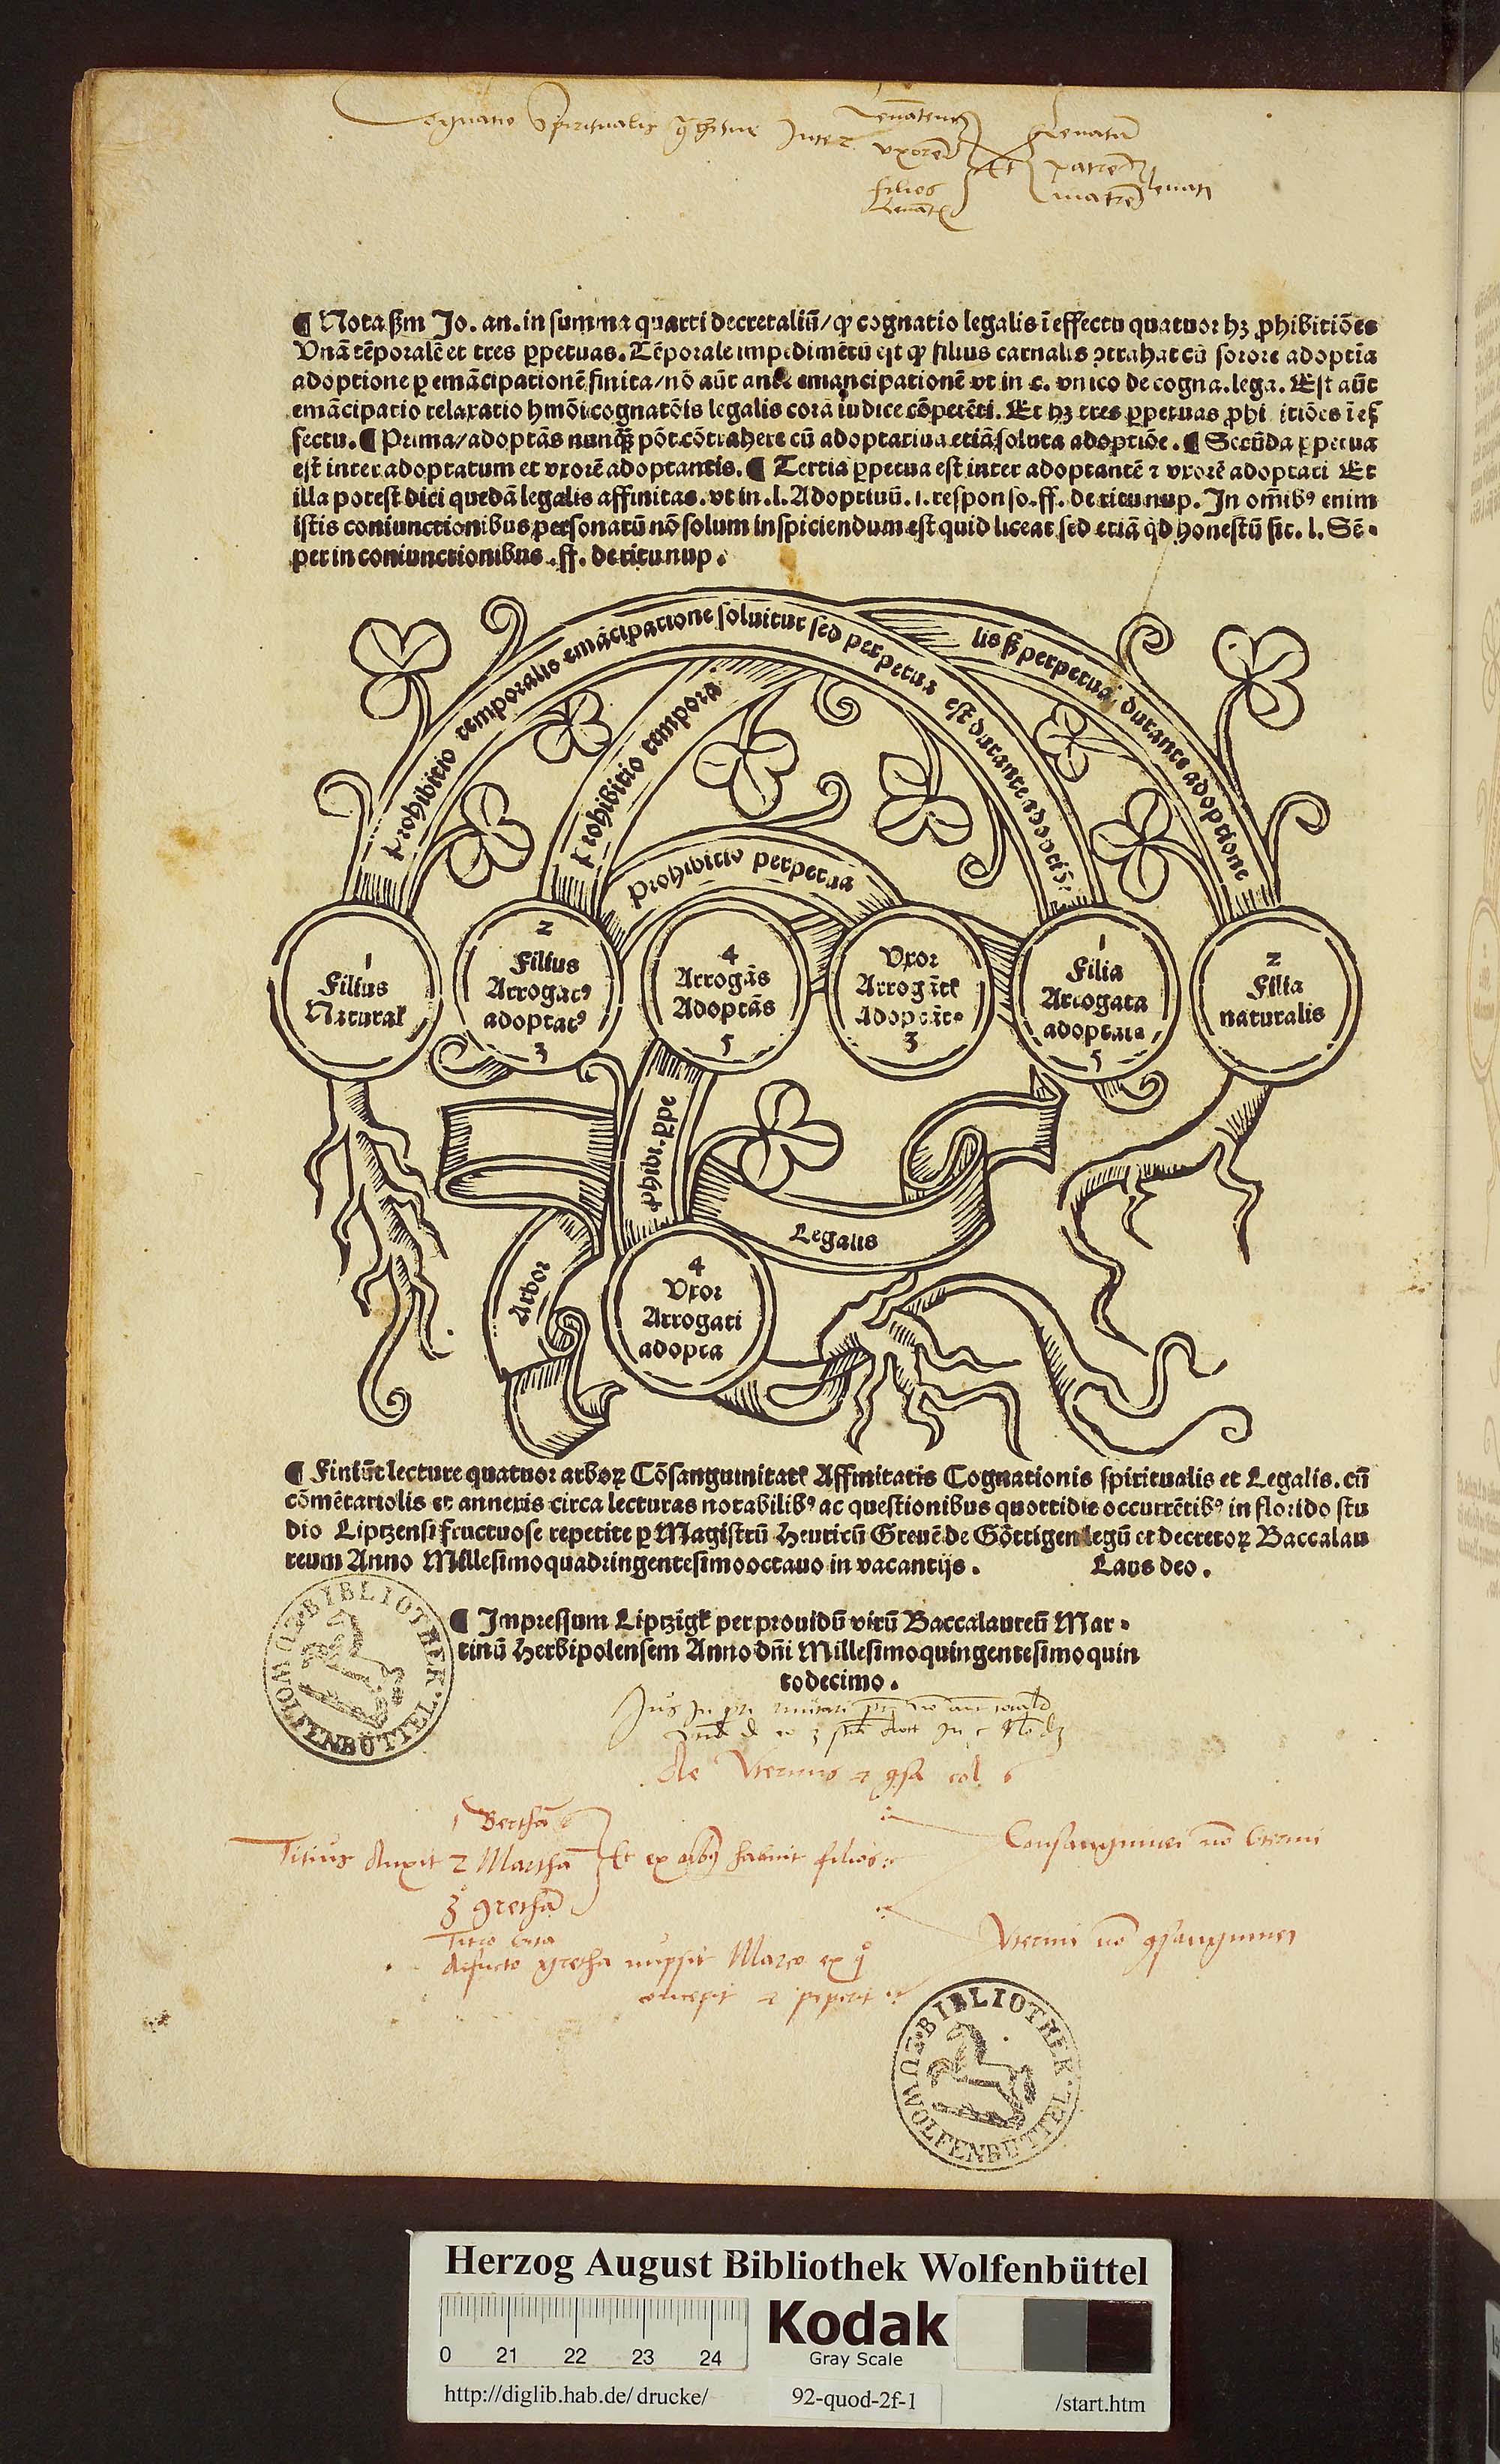 Cognatio spiritualis Inter
uxorē
filios
Et
patrē
matrē
levati
¶ Nota ẜm Jo. an. in summa quarti decretaliū/ ꝙ cognatio legalis ī effectu quatuor hꝫ ꝓhibitiōes
Vnā tēporalē et tres ꝑpetuas. Tēporale impedimētū est ꝙ filius carnalis ↄtrahat cū sorore adoptīa
adoptione ꝑ emācipationē finita/ nō aūt ante emancipationē vt in c. vnico de cogna. lega. Est aūt
emācipatio relaxatio hmōi cognatōis legalis corā iudice cōpetēti. Et hꝫ tres ꝑpetuas ꝓhi itiōes ī ef
fectu. ¶ Prima/ adoptās nunꝗ̄ pōt cōtrahere cū adoptatiua etiā soluta adoptiōe. ¶ Secūda ꝑpetua
est inter adoptatum et vxorē adoptantis. ¶ Tertia ꝑpetua est inter adoptantē ⁊ vxorē adoptati Et
illa potest dici quedā legalis affinitas. vt in. l. Adoptiuū. 1. responso. ff. de ritu nup. In om̄ibꝰ enim
istis coniunctionibus personarū nō solum inspiciendum est quid liceat sed etiā qͥd honestū sit. l. Sē-
per in coniunctionibus. ff. de ritu nup.
Prohibitio temporalis emācipatione soluitur sed perpetua est durante adoptiōe
Prohibitio tempora
lis ẜ perpetua durante adoptione
Prohibitio perpetua
1
Filius
Naturaꝉ
2
Filius
Arrogatꝰ
adoptatꝰ
3
4
Arrogās
Adoptās
5
Vxor
Arrogātꝭ
Adoptāt
3
1
Filia
Arrogata
adoptata
5
2
Filia
naturalis
ꝓhibi. ꝑpe
Arbor
Legalis
4
Vxor
Arrogati
adopta
¶ Finiūt lecture quatuor arboꝝ Cōsanguinitatꝭ Affinitatis Cognationis spiritualis et Legalis. cū
cōmētariolis et annexis circa lecturas notabilibꝰ ac questionibus quottidie occurrētibꝰ in florido stu
dio Liptzensi fructuose repetite ꝑ Magistrū Henricū Greuē de Göttigen legū et decretoꝝ Baccalau
reum Anno Millesimoquadringentesimooctauo in vacantijs. Laus deo.
¶ Impressum Liptzigk per prouidū virū Baccalaureū Mar-
tinū Herbipolensem Anno dn̄i Millesimoquingentesimoquin
todecimo.
BIBLIOTHEK WOLFENBÜTTEL
De Vterinis ⁊ col 6
1 Berthā
Titius duxit 2 Marthā Et ex habuit filios
3 grethā
Consanguinei nō Vterini
Titio
defuncto gretha nupsit Marco ex
Vterini nō ↄsanguinei
concepit ⁊ peperit
BIBLIOTHEK WOLFENBÜTTEL
Herzog August Bibliothek Wolfenbüttel
0 21 22 23 24
Kodak
Gray Scale
http://diglib.hab.de/drucke/ 92-quod-2f-1 /start.htm